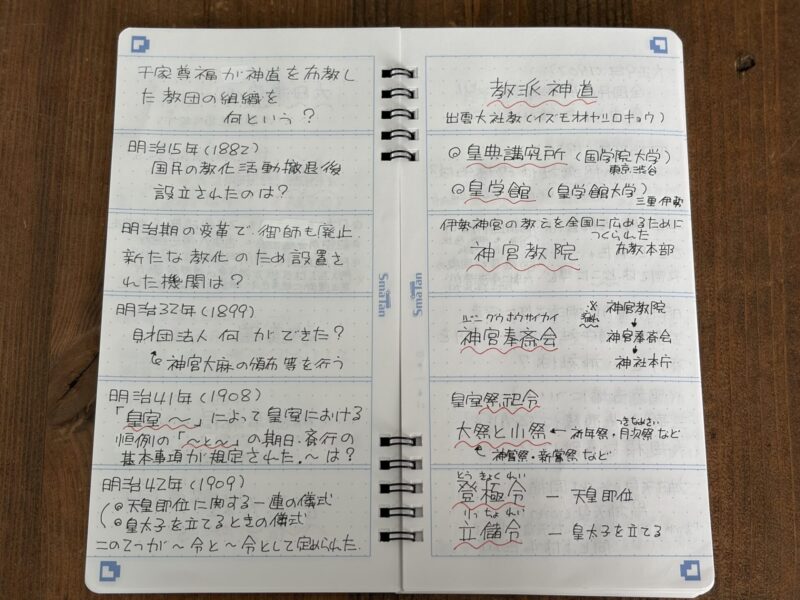 千家尊福が神道を布教し
た教団の組織を
何という？
明治15年(1882)
国民の教化活動撤退後
設立されたのは？
明治期の変革で御師も廃止.
新たな教化のため設置さ
れた機関は？
明治32年(1899)
財団法人 何 ができた？
神宮大麻の頒布等を行う
明治41年(1908)
「皇室〜」によって皇室における
恒例の「〜と〜」の期日・斎行の
基本事項が規定された.〜は？
明治42年(1909)
天皇即位に関する一連の儀式
皇太子を立てるときの儀式
この2つが〜令と〜令として定められた.
SmaTan
教派神道
出雲大社教(イズモオオヤシロキョウ)
◎皇典講究所 (国学院大学)
東京渋谷
◎皇学館 (皇学館大学)
三重伊勢
伊勢神宮の教えを全国に広めるために
つくられた
神宮教院 布教本部
ジングウホウサイカイ
神宮奉斎会
※
神宮教院
↓
神宮奉斎会
↓
神社本庁
皇室祭祀令
大祭と小祭 ← 祈年祭・月次祭など
つきなみさい
神嘗祭・新嘗祭など
とうきょくれい
登極令 — 天皇即位
りっちょれい
立儲令 — 皇太子を立てる
SmaTan